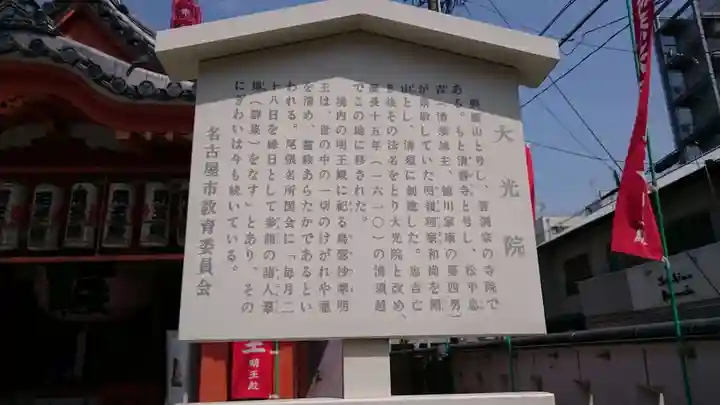 大光院
興國山と号し、曹洞宗の寺院で
ある。もと清善寺と号し、松平忠
吉(清須城主、徳川家康の第四男)
が崇敬していた明嶺理察和尚を開
山とし、清須に創建した。忠吉亡
き後その法名をとり大光院と改め、
慶長十五年(一六一〇)の清須越
でこの地に移された。
境内の明王殿に祀る烏蒭沙摩明
王は、世の中の一切のけがれや悪
を清め、霊験あらたかであるとい
われる。尾張名所図会に「毎月二
十八日を縁日として参詣の諸人羣
集(群集)をなす」とあり、その
にぎわいは今も続いている。
名古屋市教育委員会
明王殿